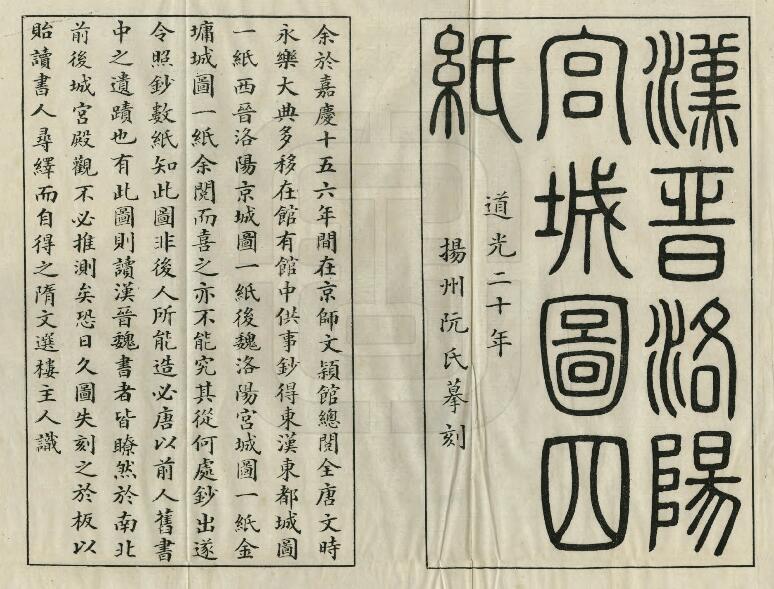 漢晋洛陽
宮城圖四
紙
道光二十年
揚州阮氏摹刻
余於嘉慶十五六年間在京師文頴館總閱全唐文時
永樂大典多移在館有館中供事鈔得東漢東都城圖
一紙西晉洛陽京城圖一紙後魏洛陽宮城圖一紙金
墉城圖一紙余閱而喜之亦不能究其從何處鈔出遂
令照鈔數紙知此圖非後人所能造必唐以前人舊書
中之遺蹟也有此圖則讀漢晉魏書者皆瞭然於南北
前後城宮殿觀不必推測矣恐日久圖失刻之於板以
貽讀書人尋繹而自得之隋文選樓主人識